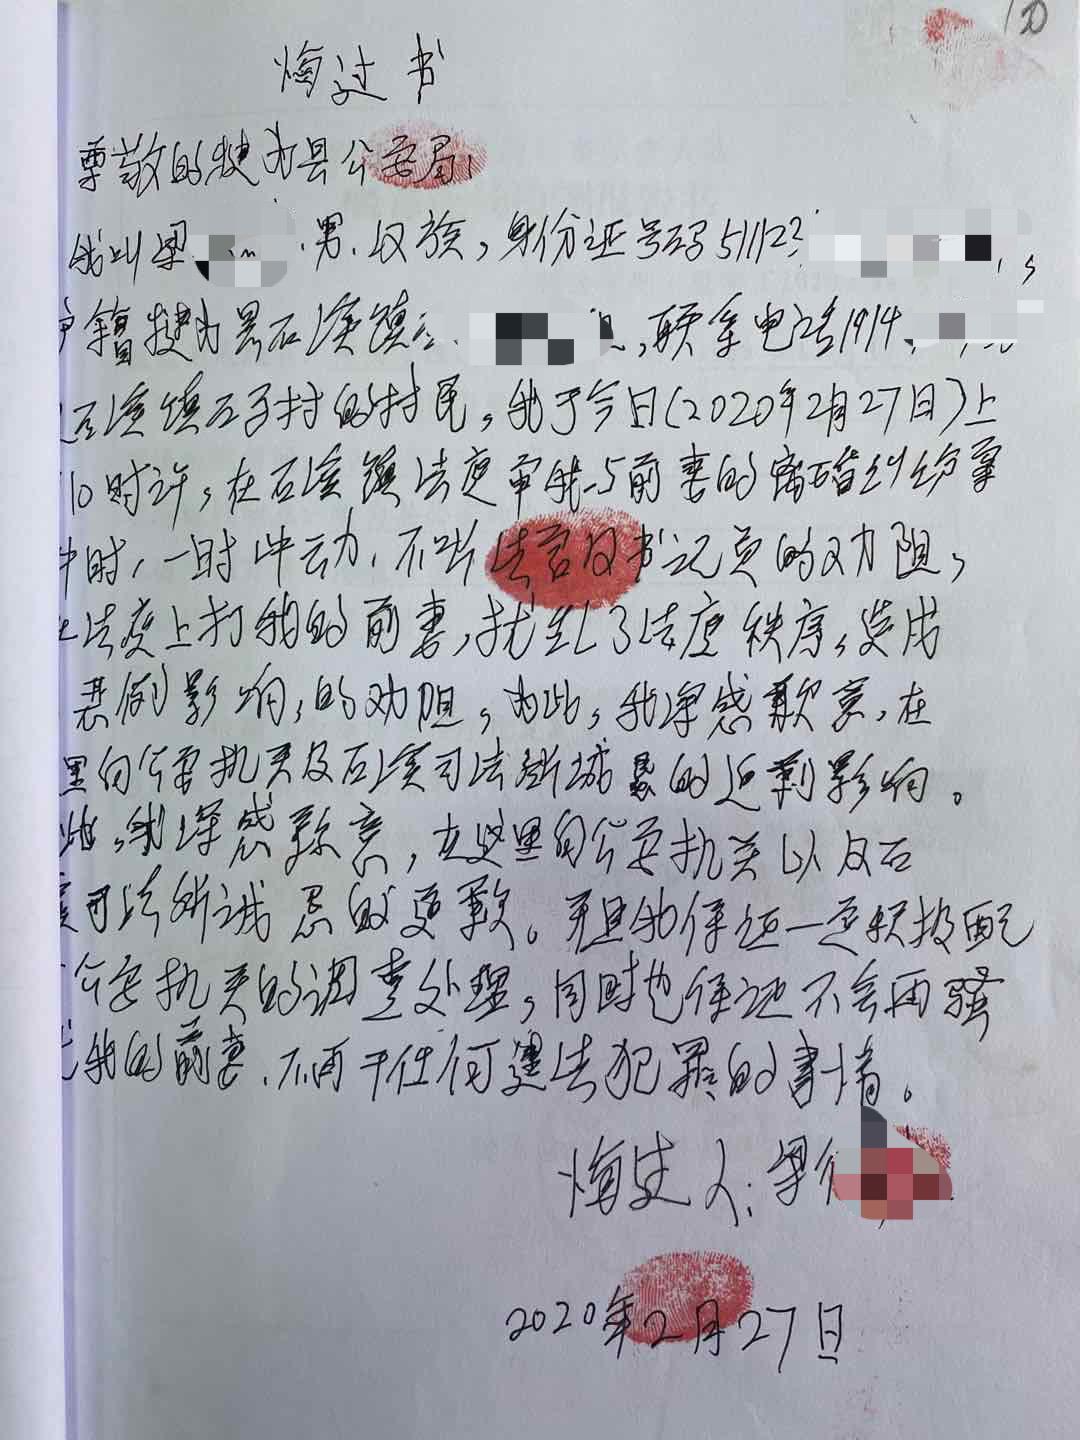 悔过书
尊敬的犍为县公安局、
我叫梁 男、汉族，身份证号码51112
籍犍为县石溪镇 ，联系电话1914
石溪镇石子村的村民，我于今日(2020年2月27日)上
10时许，在石溪镇法庭审我与前妻的离婚纠纷案
时，一时冲动，不听法官及书记员的劝阻，
法庭上打我的前妻，扰乱了法庭秩序，造成
恶例影响，的劝阻，为此，我深感歉意，在
里向公安执关及石溪司法所 的 影响。
此，我深感歉意，在这里向公安执关以及石
司法所诚 的 歉。并且我保证一定积极配
公安执关的调查处理，同时也保证不会再骚
我的前妻、不再干任何违法犯罪的事情。
悔过人：梁
2020年2月27日